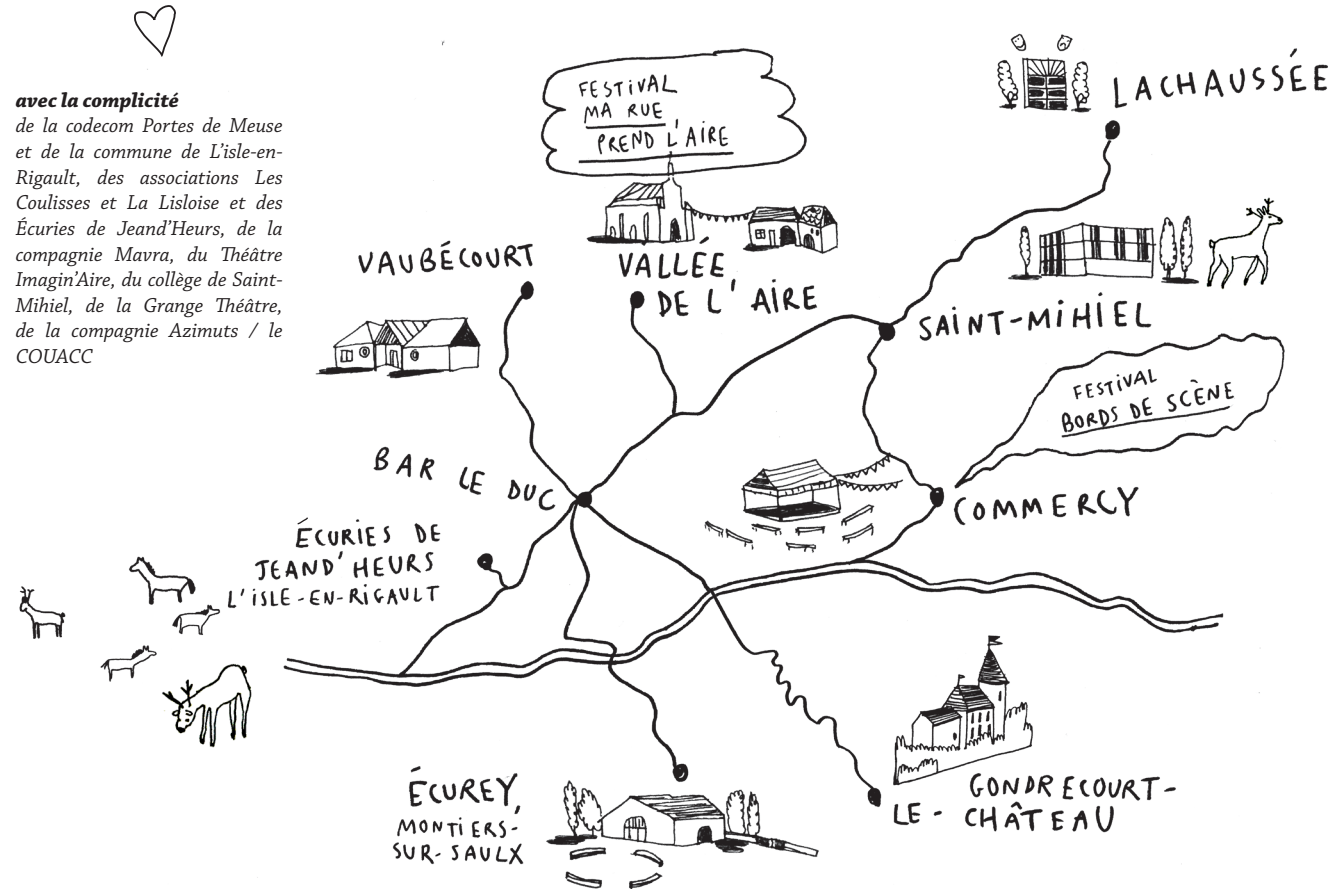 avec la complicité
de la codecom Portes de Meuse
et de la commune de L'isle-en-
Rigault, des associations Les
Coulisses et La Lisloise et des
Écuries de Jeand'Heurs, de la
compagnie Mavra, du Théâtre
Imagin'Aire, du collège de Saint-
Mihiel, de la Grange Théâtre,
de la compagnie Azimuts / le
COUACC
FESTIVAL
MA RUE
PREND L'AIRE
LACHAUSSÉE
VAUBÉCOURT
VALLÉE
DE L'AIRE
SAINT-MIHIEL
FESTIVAL
BORDS DE SCÈNE
BAR LE DUC
COMMERCY
ÉCURIES DE
JEAND'HEURS
L'ISLE-EN-RIGAULT
ÉCUREY,
MONTIERS-
SUR-SAULX
GONDRECOURT-
LE-CHÂTEAU